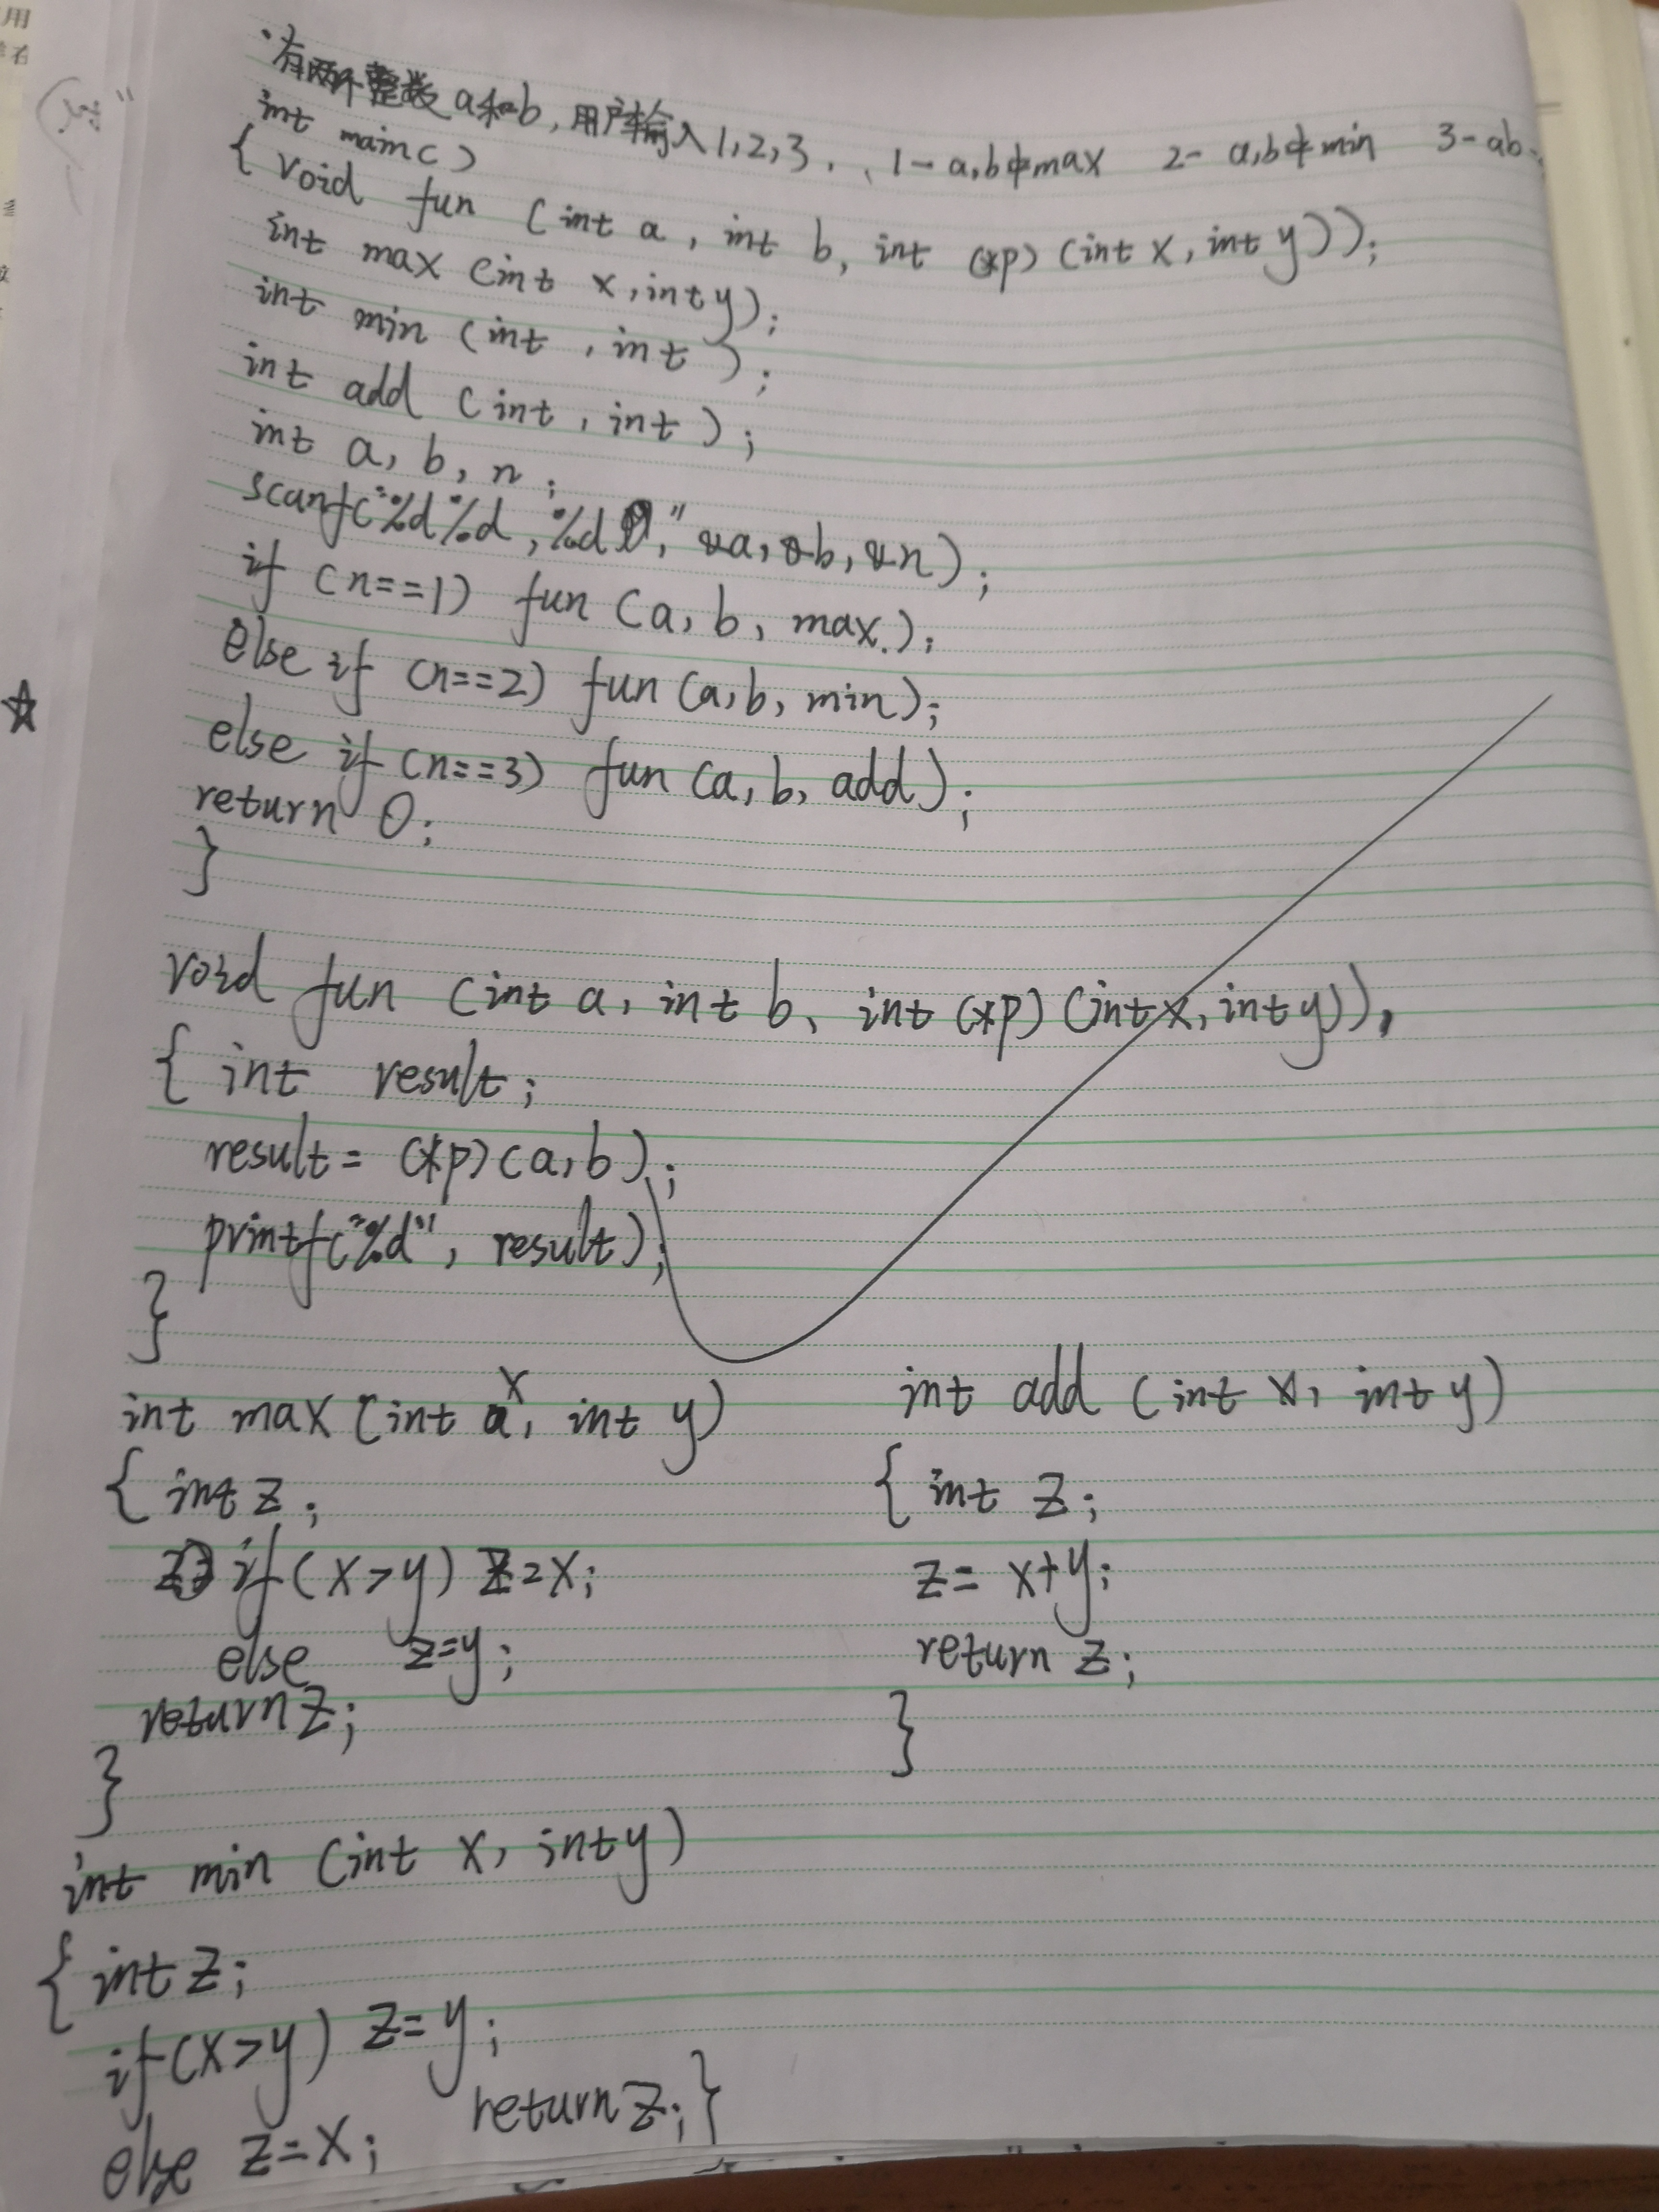 有两个整数a和b,用户输入1,2,3. 、1-a,b中max 2- a,b中min 3-ab
int main()
{ void fun (int a, int b, int (*p) (int x, int y));
int max (int x, int y);
int min (int , int );
int add (int , int );
int a, b, n;
scanf("%d%d,%d," &a, &b, &n);
if (n==1) fun (a, b, max.);
else if (n==2) fun (a, b, min);
else if (n==3) fun (a, b, add);
return 0;
}
void fun (int a, int b、 int (*p) (int x, int y)),
{ int result;
result = (*p)(a,b);
printf("%d", result);
}
int max (int x, int y)
{ int z;
if (x>y) z=x;
else z=y;
return z;
}
int add (int x, int y)
{ int z;
z= x+y;
return z;
}
int min (int x, int y)
{ int z;
if(x>y) z=y;
else z=x; return z; }
用